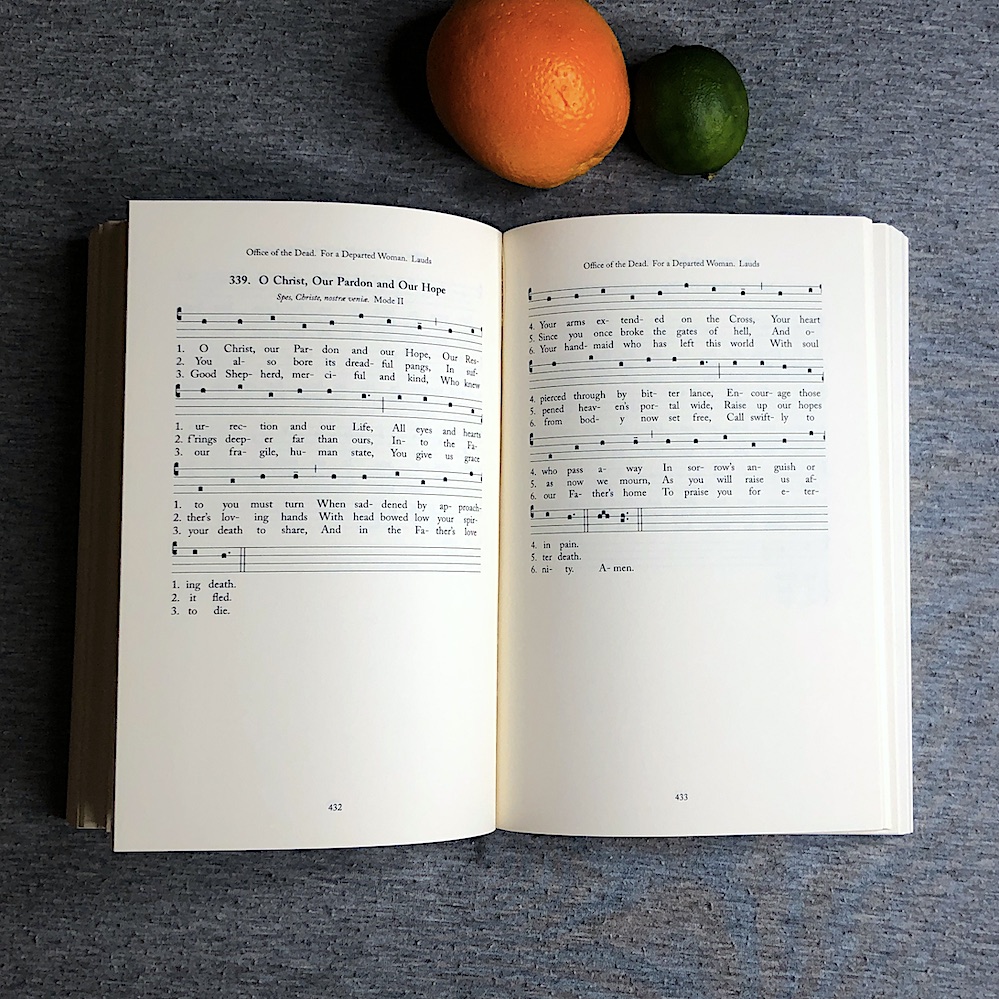 Office of the Dead. For a Departed Woman. Lauds
339. O Christ, Our Pardon and Our Hope
Spes, Christe, nostræ veniæ. Mode II
1. O Christ, our Par- don and our Hope, Our Res-
2. You al- so bore its dread- ful pangs, In suf-
3. Good Shep- herd, mer- ci- ful and kind, Who knew
1. ur- rec- tion and our Life, All eyes and hearts
2. f'rings deep- er far than ours, In- to the Fa-
3. our fra- gile, hu- man state, You give us grace
1. to you must turn When sad- dened by ap- proach-
2. ther's lov- ing hands With head bowed low your spir-
3. your death to share, And in the Fa- ther's love
1. ing death.
2. it fled.
3. to die.
432
Office of the Dead. For a Departed Woman. Lauds
4. Your arms ex- tend- ed on the Cross, Your heart
5. Since you once broke the gates of hell, And o-
6. Your hand- maid who has left this world With soul
4. pierced through by bit- ter lance, En- cour- age those
5. pened heav- en's por- tal wide, Raise up our hopes
6. from bod- y now set free, Call swift- ly to
4. who pass a- way In sor- row's an- guish or
5. as now we mourn, As you will raise us af-
6. our Fa- ther's home To praise you for e- ter-
4. in pain.
5. ter death.
6. ni- ty. A- men.
433